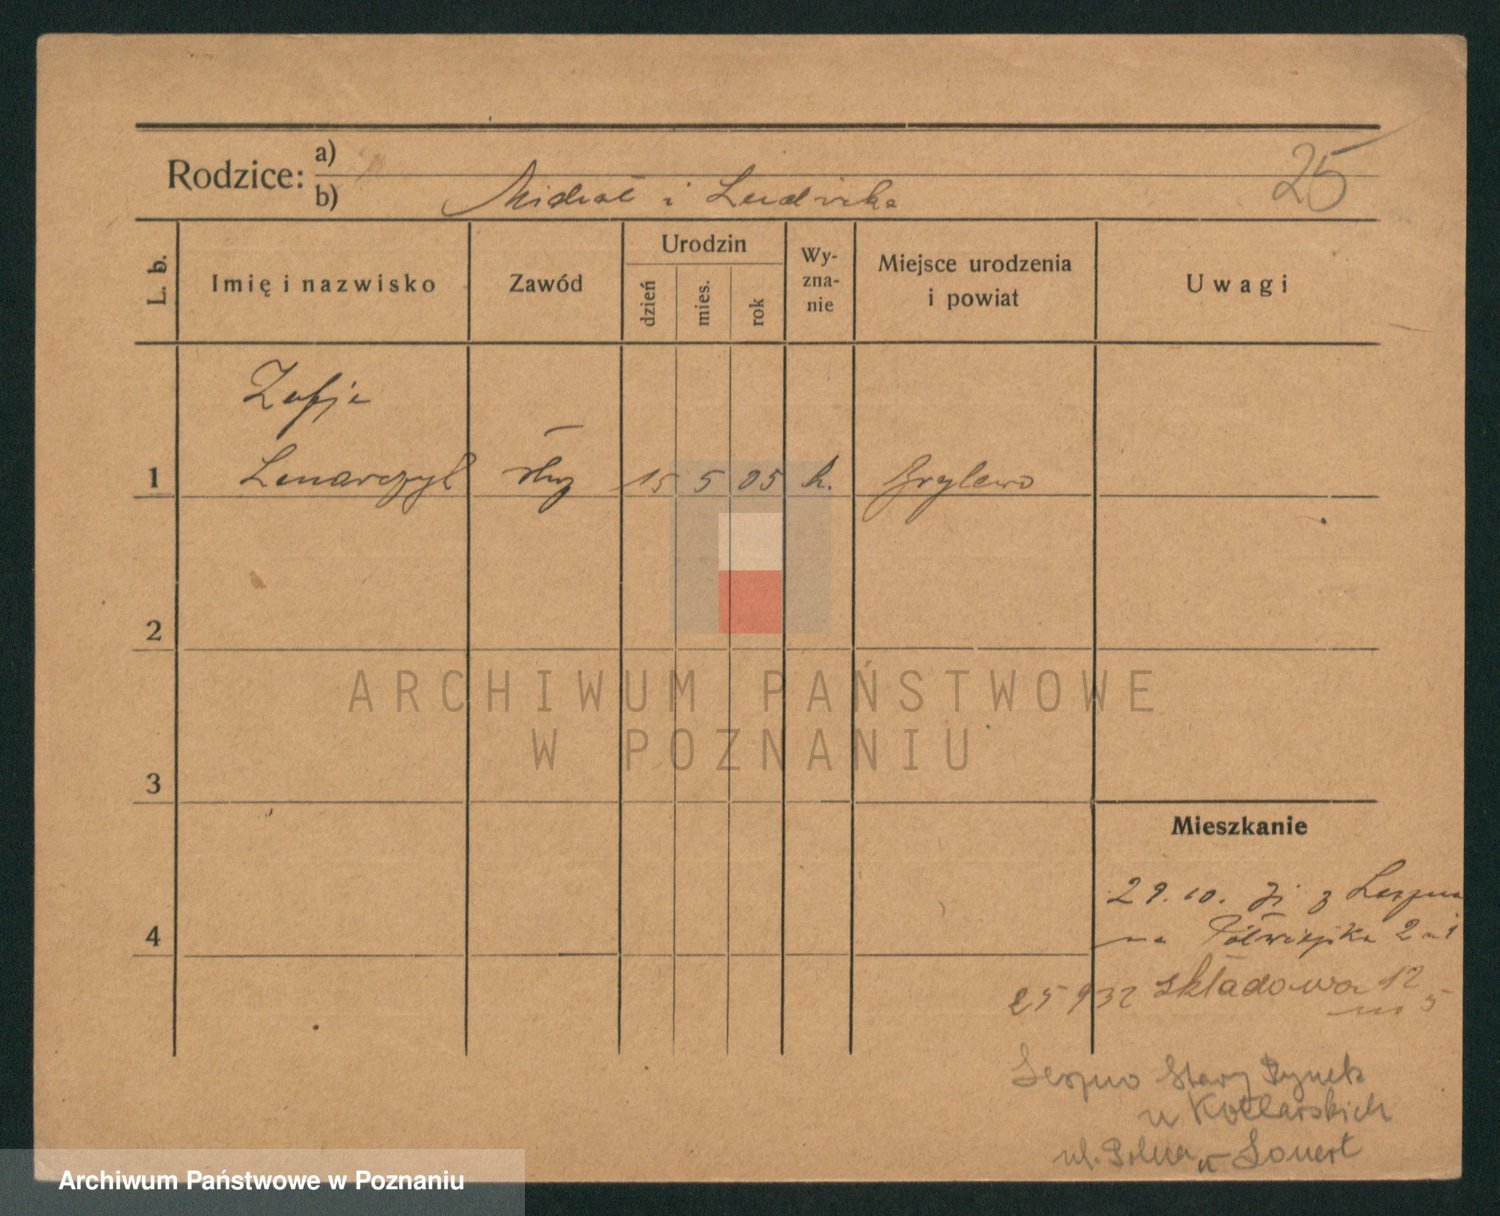 Rodzice: a)
b) Michał i Ludwika
25
L. b.
Imię i nazwisko
Zawód
Urodzin
dzień
mies.
rok
Wy-
zna-
nie
Miejsce urodzenia
i powiat
Uwagi
Zofja
1 Lenarczyk służ 15 5 05 k. Grylewo
2
ARCHIWUM PAŃSTWOWE
W POZNANIU
3
Mieszkanie
29. 10. z Leszna
4
na Półwiejska 2 m 1
25 9 32 składowa 12
m 5
Leszno Stary Rynek
u Kotlarskich
ul. Polna u
Archiwum Państwowe w Poznaniu